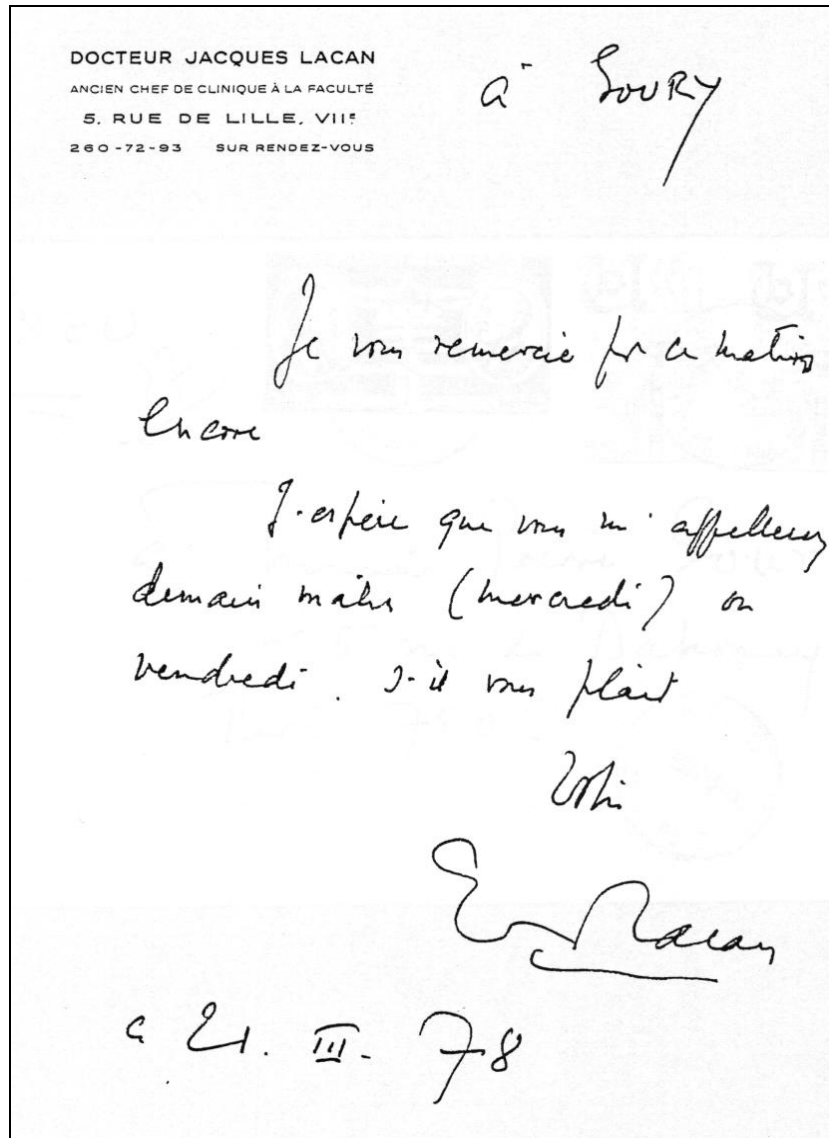 DOCTEUR JACQUES LACAN
ANCIEN CHEF DE CLINIQUE À LA FACULTÉ
5, RUE DE LILLE, VIIE
260-72-93 SUR RENDEZ-VOUS
à SOURY
Je vous remercie pr ce matin
Encore
J'espère que vous m'appellerez
demain matin (mercredi) ou
vendredi. s'il vous plait
Votre
Lacan
ce 21. III. 78